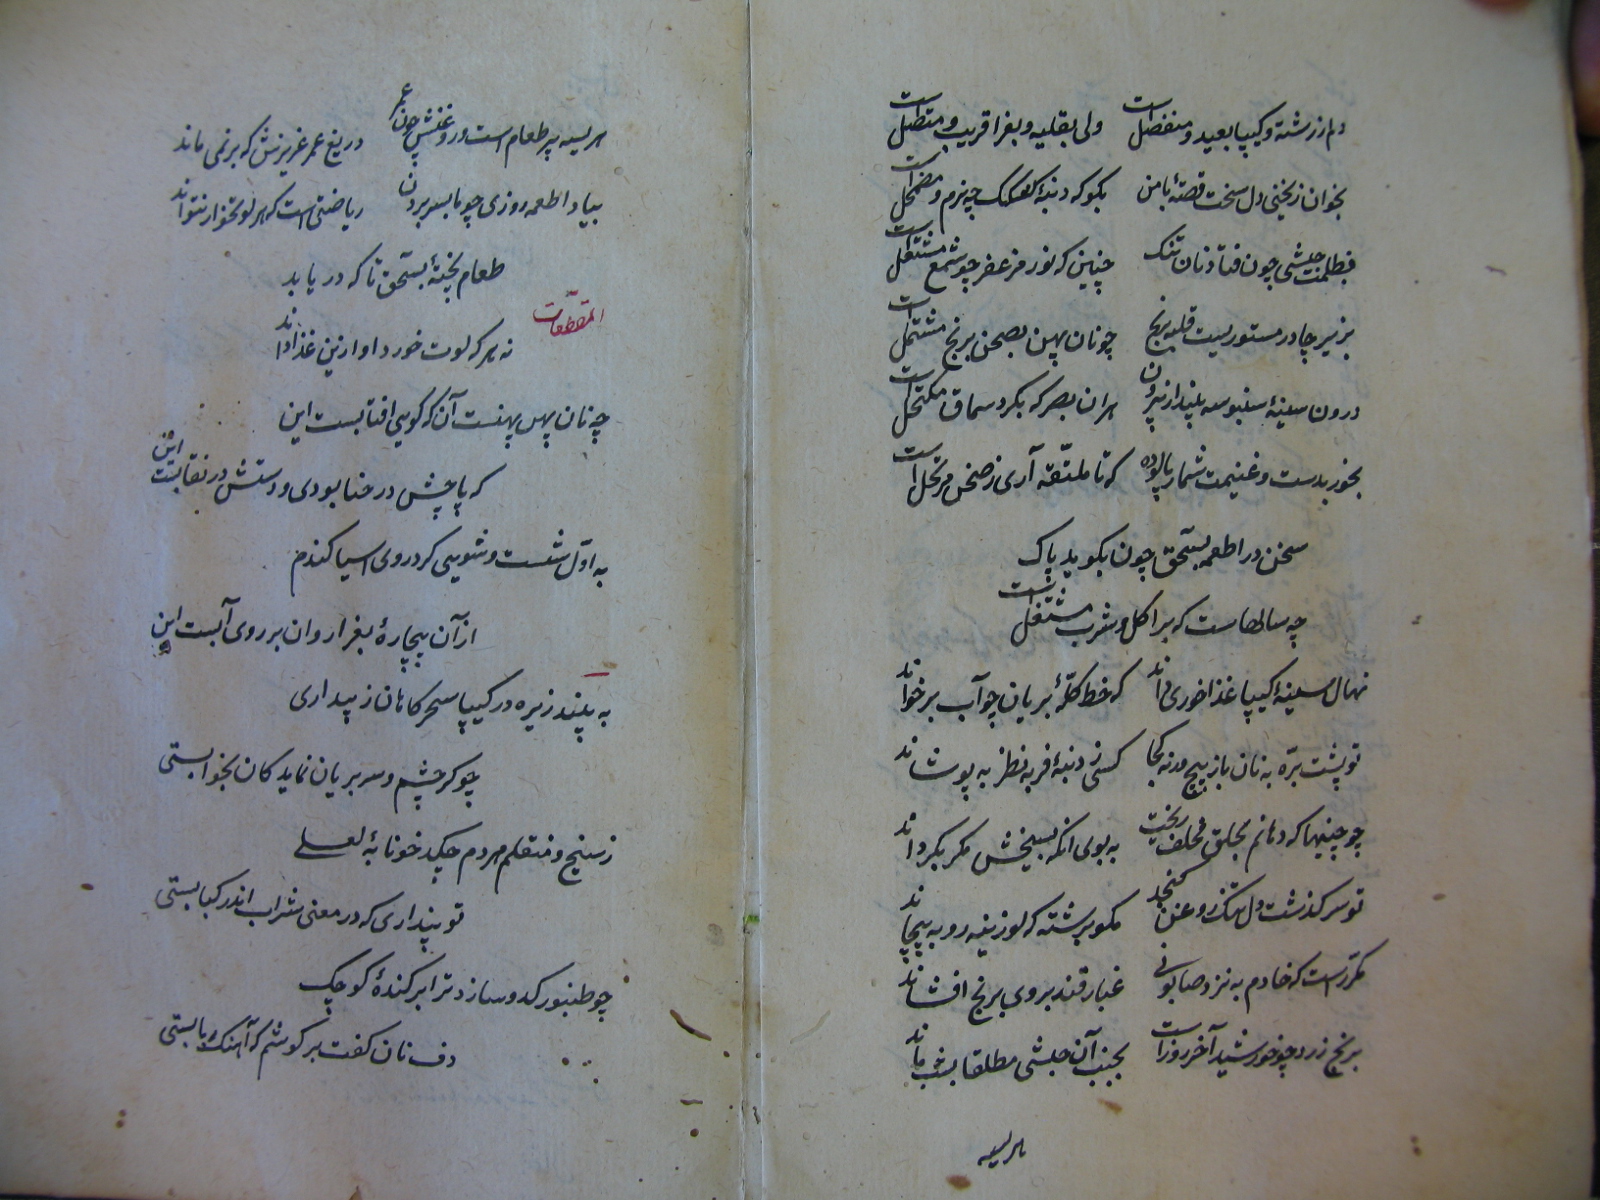 دلم ز رشته و کیپا بعید و منفصل است ولی بقلیه و بغرا قریب و متصل است
بخوان ز یخنی دل سخت قصّهٔ با من بگو که دنبهٔ کعکک چه نرم و مضمحل است
بظلمت حبشی چون فتاد نان تنک چنین که نور مزعفر چو شمع مشتعل است
بزیر چادر مستوریست قلیه برنج چو نان پهن بصحن برنج مشتمل است
درون سینهٔ سنبوسه بیند از بیرون هر ان بصر که بکرد سماق مکتحل است
بخور بدست و غنیمت شمار پالوده که تا ملعقه آری ز صحن مرتحل است
سخن در اطعمه بسحق چون بگوید پاک
چه سالهاست که بر اکل و شرب مشتغل است
نهال سینهٔ کیپا غذا خوری داند که خط کلّهٔ بریان چو آب بر خواند
تو پشت برّه به نان باز پیچ ورنه کجا کسی ز دنبهٔ فربه نظر به پوشاند
چو چینها که دهانم بحلق محلف ریخت به بوی انکه بسیخش مگر بگرداند
تو سرگذشت دل تنک روغن کنجد مگو برشته که لوزینه رو به پیچاند
مکرّر است که خادم به نزد صابونی غبار قند بروی برنج افشاند
برنج زرد چو خورشید آخر روز است بجنب آن حبشی مطلقا بشب ماند
هریسه
هریسه پیر طعام است و روغنش چون عمر دریغ عمر عزیزش که بر نمی ماند
بیاد اطعمه روزی چو ما بسر بردن ریاضتی است که هر لوتخوار نتواند
طعام پختهٔ بسحق تا که دریابد
المقطعات
نه هر که لوت خورد او ازین غذا داند
چه نان پهن پهنست آن که گویی افتابست این
که پاچش در حنا بودی و دستش در نقابست این
به اوّل شست و شویی کرد روی اسیا کندم
از آن بیچارهٔ بغرا روان بر روی آبست این
به بیند زیره در کیپا سحرکاهان ز بیداری
چو کر چشم و سر بریان نماید کان بخوابستی
ز سیخ و منقلم هر دم چکد خونابهٔ لعلی
تو پنداری که در معنی شراب اندر کبابستی
چو طنبور کدو سازد ترا بر کندهٔ کوچک
دف نان کفت بر کوشم که آهنک ربابستی